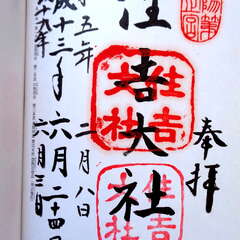 奉拝
住吉大社
住吉大社
住吉大社
五年 二月八日
成十三年 六月二十四日
十九年
月三日